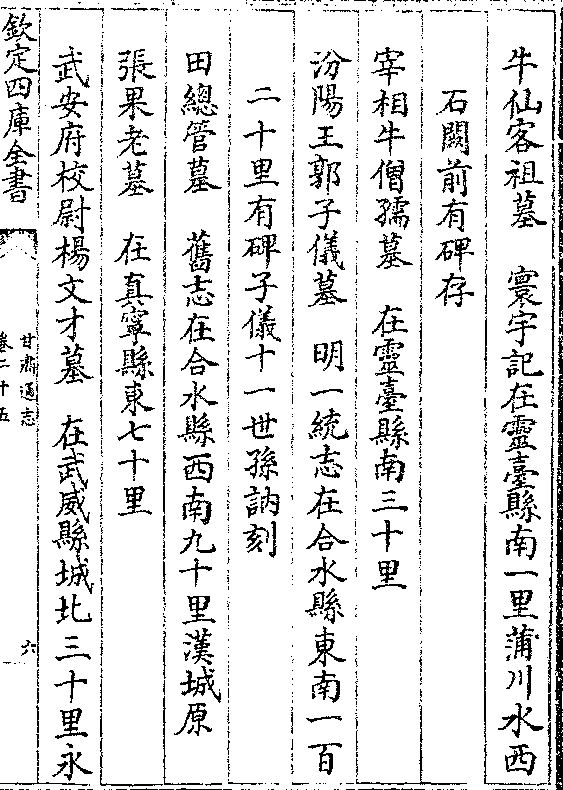 牛仙客祖墓　寰宇記在靈臺縣南一里蒲川水西
石闕前有碑存
宰相牛僧孺墓　在靈臺縣南三十里
汾陽王郭子儀墓　明一統志在合水縣東南一百
二十里有碑子儀十一世孫訥刻
田總管墓　舊志在合水縣西南九十里漢城原
張果老墓　在真寧縣東七十里
武安府校尉楊文才墓　在武威縣城北三十里永
欽定四庫全書
甘肅通志
卷二十五
六